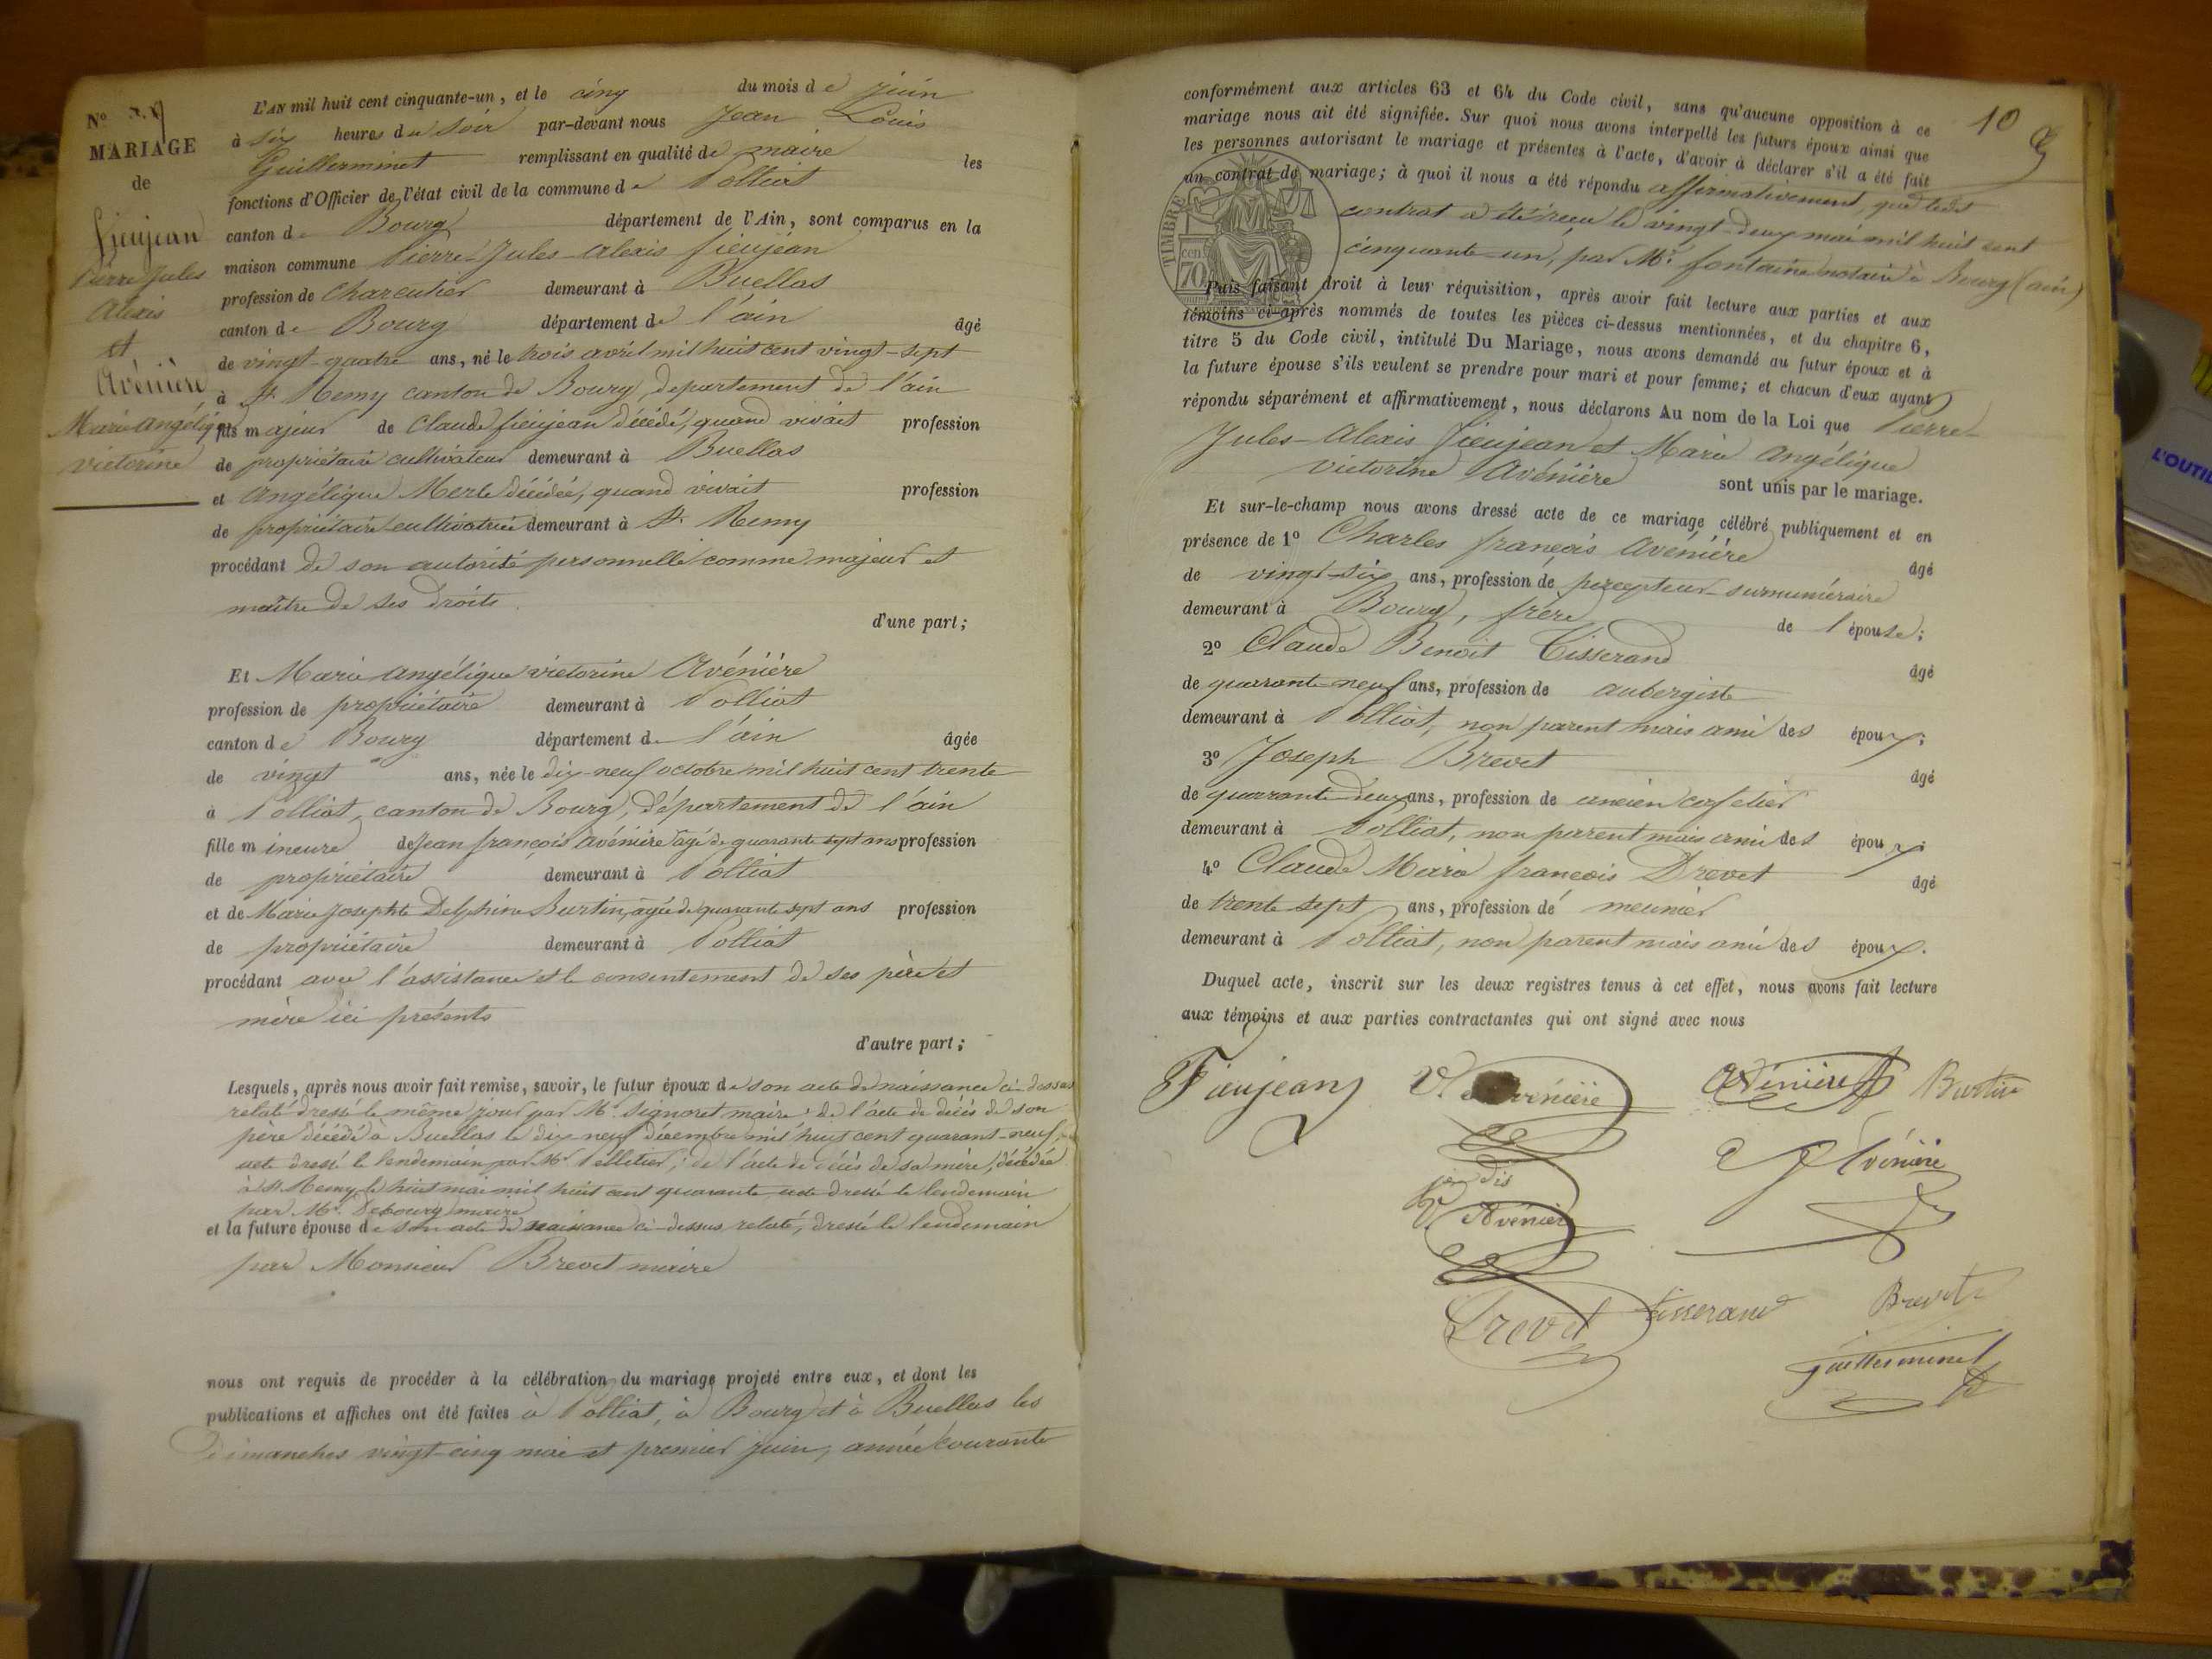 N°
MARIAGE
de
fieujean
Pierre Jules
Alexis
et
Avénière
Marie angélique
victorine
L'AN mil huit cent cinquante-un, et le cinq du mois de juin
à six heures du soir par-devant nous Jean Louis
Guillerminet remplissant en qualité de maire les
fonctions d'Officier de l'état civil de la commune de Polliat
canton de Bourg département de l'Ain, sont comparus en la
maison commune Pierre-Jules-alexis fieujean
profession de charcutier demeurant à Buellas
canton de Bourg département de l'ain âgé
de vingt-quatre ans, né le trois avril mil huit cent vingt-sept
à St Remy canton de Bourg, département de l'ain
fils majeur de Claude fieujean décédé, quand vivait profession
de propriétaire cultivateur demeurant à Buellas
et angélique Merle décédée, quand vivait profession
de propriétaire cultivatrice demeurant à St. Remy
procédant de son autorité personnelle comme majeur et
maître de ses droits.
d'une part;
Et Marie angélique victorine Avénière
profession de propriétaire demeurant à Polliat
canton de Bourg département de l'ain âgée
de vingt ans, née le dix-neuf octobre mil huit cent trente
à Polliat, canton de Bourg, département de l'ain
fille mineure de Jean françois avénière âgé de quarante sept ans profession
de propriétaire demeurant à Polliat
et de Marie Josephte Delphine Burtin, âgée de quarante sept ans profession
de propriétaire demeurant à Polliat
procédant avec l'assistance et le consentement de ses père et
mère ici présents
d'autre part;
Lesquels, après nous avoir fait remise, savoir, le futur époux de son acte de naissance ci-dessus
relaté dressé le même jour par Mr. Signoret maire; de l'acte de décès de son
père décédé à Buellas le dix-neuf décembre mil huit cent quarante-neuf,
acte dressé le lendemain par Mr Pelletier; de l'acte de décès de sa mère, décédée
à St Remy le huit mai mil huit cent quarante acte dressé le lendemain
par Mr. Debourg maire
et la future épouse de son acte de naissance ci-dessus relaté, dressé le lendemain
par Monsieur Brevet maire
nous ont requis de procéder à la célébration du mariage projeté entre eux, et dont les
publications et affiches ont été faites à Polliat, à Bourg et à Buellas les
dimanches vingt-cinq mai et premier juin, année courante
10
conformément aux articles 63 et 64 du Code civil, sans qu'aucune opposition à ce
mariage nous ait été signifiée. Sur quoi nous avons interpellé les futurs époux ainsi que
les personnes autorisant le mariage et présentes à l'acte, d'avoir à déclarer s'il a été fait
un contrat de mariage; à quoi il nous a été répondu affirmativement, que ledit
contrat a été reçu le vingt-deux mai mil huit cent
cinquante-un, par Mr. fontaine notaire à Bourg (ain)
TIMBRE
70 cen
Puis faisant droit à leur réquisition, après avoir fait lecture aux parties et aux
témoins ci-après nommés de toutes les pièces ci-dessus mentionnées, et du chapitre 6,
titre 5 du Code civil, intitulé Du Mariage, nous avons demandé au futur époux et à
la future épouse s'ils veulent se prendre pour mari et pour femme; et chacun d'eux ayant
répondu séparément et affirmativement, nous déclarons Au nom de la Loi que Pierre-
Jules-Alexis fieujean et Marie angélique
victorine Avénière sont unis par le mariage.
Et sur-le-champ nous avons dressé acte de ce mariage célébré publiquement et en
présence de 1° Charles françois avénière âgé
de vingt-six ans, profession de percepteur-surnuméraire
demeurant à Bourg, frère de l'épouse;
2° Claude Benoit Tisserand âgé
de quarante-neuf ans, profession de aubergiste
demeurant à Polliat, non parent mais ami des époux;
3° Joseph Brevet âgé
de quarante-deux ans, profession de ancien cafetier
demeurant à Polliat, non parent mais ami des époux;
4° Claude Marie françois Drevet âgé
de trente sept ans, profession de meunier
demeurant à Polliat, non parent mais ami des époux.
Duquel acte, inscrit sur les deux registres tenus à cet effet, nous avons fait lecture
aux témoins et aux parties contractantes qui ont signé avec nous
Fieujean V. Avénière Avénière Burtin
Avénière
je dis
V. Avénière
Drevet tisserand Brevet
Guillerminet
L'OUTIL